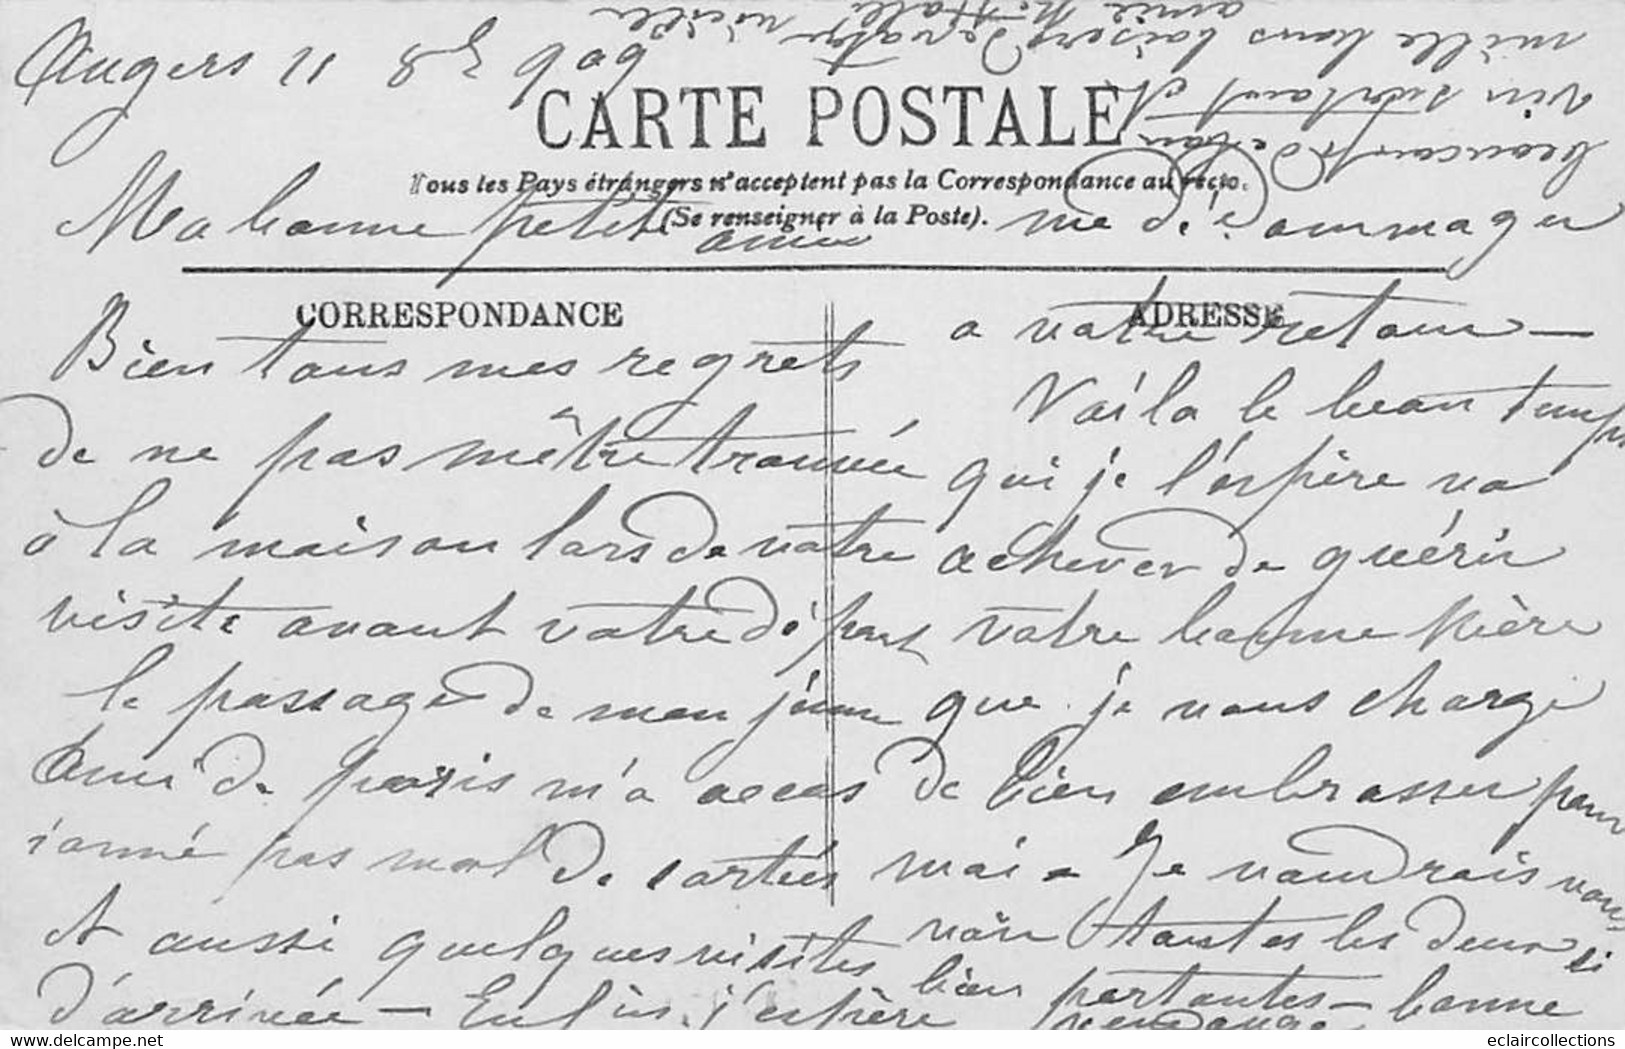 Angers 11 8bre 909
CARTE POSTALE
Tous les Pays étrangers n'acceptent pas la Correspondance au recto.
(Se renseigner à la Poste).
CORRESPONDANCE
ADRESSE
Ma bonne petite amie
Bien tous mes regrets
de ne pas mêtre trouvée
à la maison lors de votre
visite avant votre départ
le passage de mon jeune
ami de paris m'a occas
ionné pas mal de sorties
et aussi quelques visites
d'arrivée — Enfin j'espère
me dédommager
a votre retour —
Voila le beau temps
qui je l'espère va
achever de guérir
votre bonne Mère
que je vous charge
de bien embrasser pour
moi - Je voudrais vous
voir toutes les deux si
bien portantes — bonne
vendange
beaucoup de bon
vin surtout et
mille bons baisers de votre vieille
amie
eclaircollections